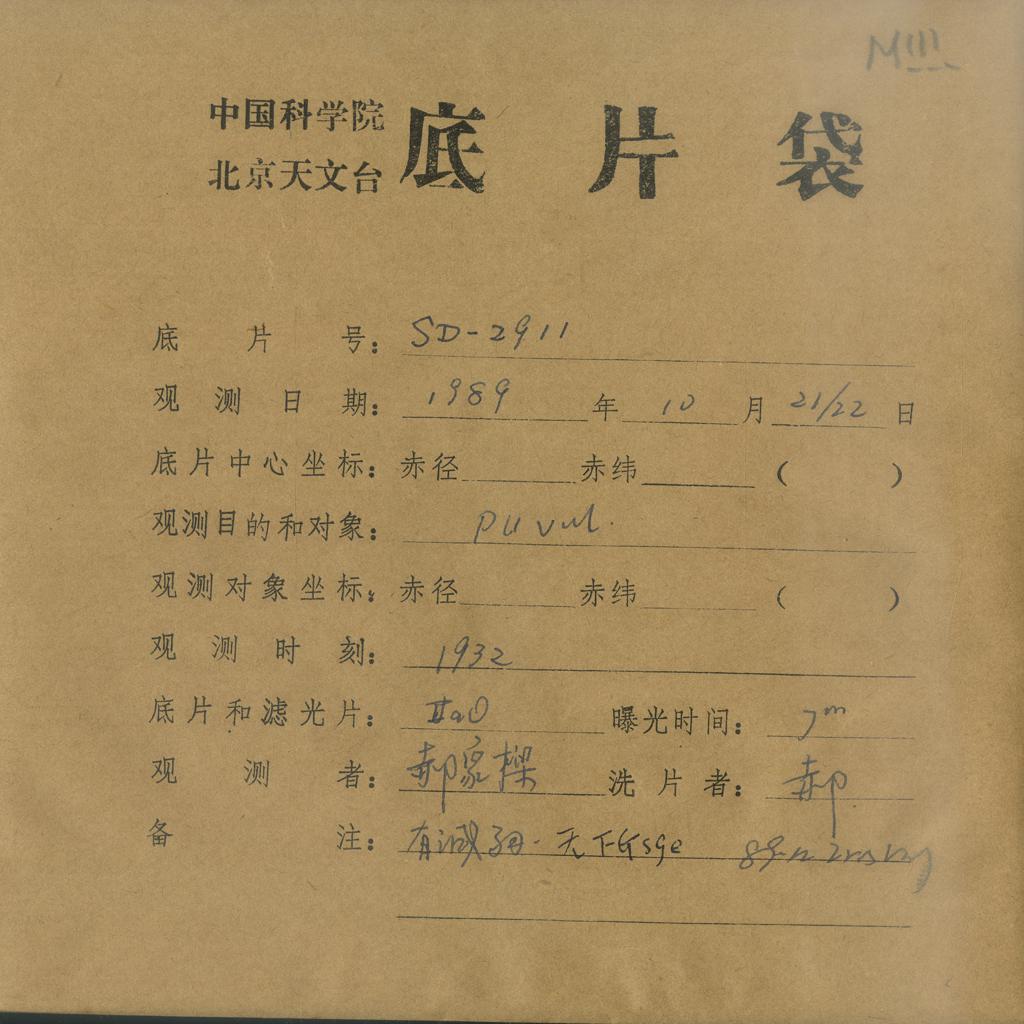 M111
中国科学院
北京天文台
底片袋
底片号：SD-2911
观测日期：1989年10月21/22日
底片中心坐标：赤径 赤纬 （ ）
观测目的和对象：PU vul.
观测对象坐标：赤径 赤纬 （ ）
观测时刻：1932
底片和滤光片：IIaO 曝光时间：7m
观测者：郝家樑 洗片者：郝
备注：有